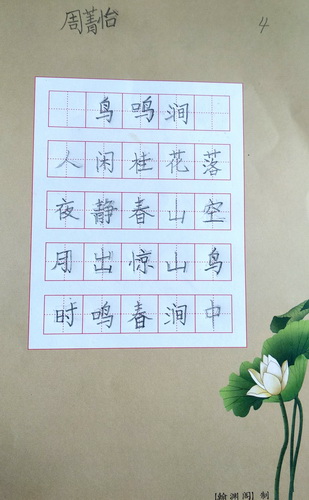 周菁怡 4
鸟鸣涧
人闲桂花落
夜静春山空
月出惊山鸟
时鸣春涧中
【翰洲阁】制